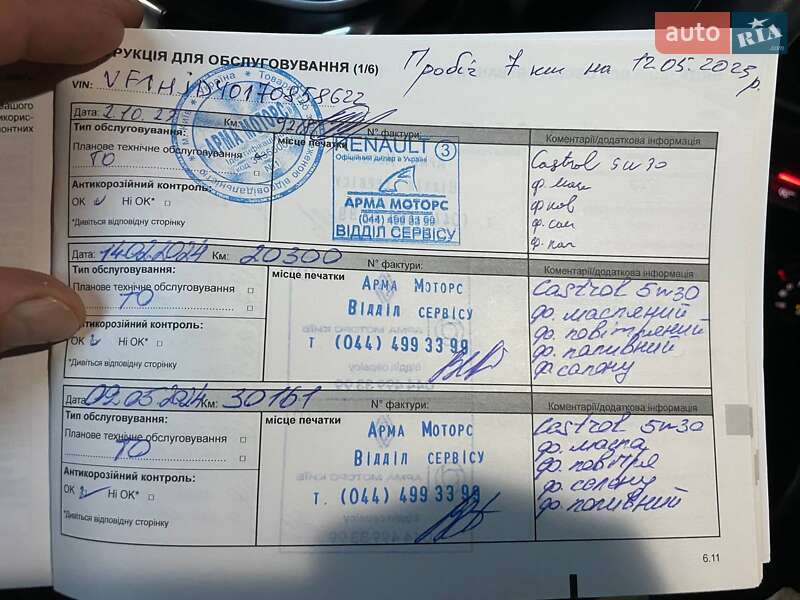 auto RIA .com
РУКЦІЯ ДЛЯ ОБСЛУГОВУВАННЯ (1/6)
Пробіг 7 км на 12.05.2023 р.
VIN:
Дата: Км: N° фактури:
Тип обслуговування: місце печатки Коментарі/додаткова інформація
Планове технічне обслуговування
ТО
Антикорозійний контроль:
OK Ні OK*
*Дивіться відповідну сторінку
АРМА МОТОРС
RENAULT 3
Офіційний дилер в Україні
АРМА МОТОРС
(044) 499 33 99
ВІДДІЛ СЕРВІСУ
Castrol 5w30
ф. мас
ф. пов
ф. сал
ф. пал
Дата: 14.02.2024 Км: 20300 N° фактури:
Тип обслуговування: місце печатки Коментарі/додаткова інформація
Планове технічне обслуговування
ТО
Антикорозійний контроль:
OK Ні OK*
*Дивіться відповідну сторінку
АРМА МОТОРС
ВІДДІЛ СЕРВІСУ
т (044) 499 33 99
Castrol 5w30
ф. масляний
ф. повітряний
ф. паливний
ф салону
Дата: 09.05.2024 Км: 30161 N° фактури:
Тип обслуговування: місце печатки Коментарі/додаткова інформація
Планове технічне обслуговування
ТО
Антикорозійний контроль:
OK Ні OK*
*Дивіться відповідну сторінку
АРМА МОТОРС
ВІДДІЛ СЕРВІСУ
т. (044) 499 33 99
Castrol 5w30
ф. масла
ф. повітря
ф. салону
ф. паливний
6.11